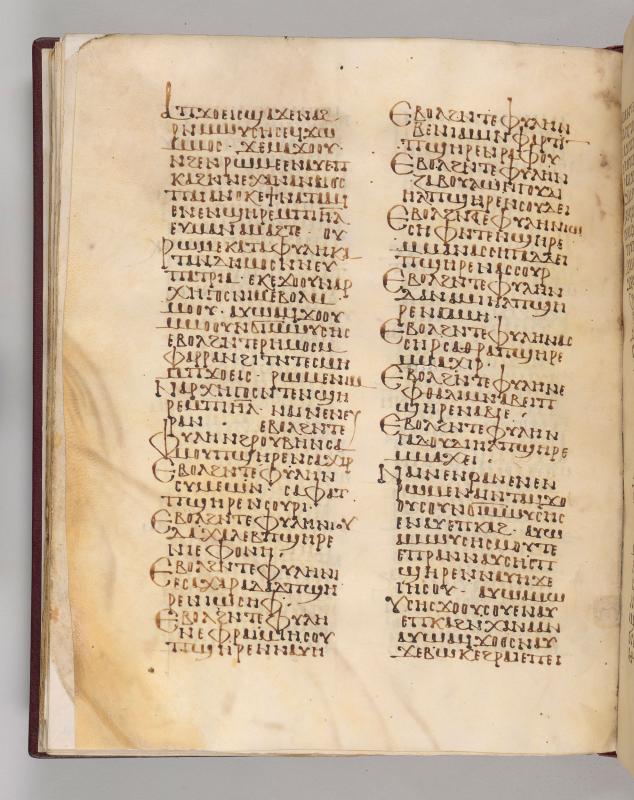 ⲁⲡϫⲟⲉⲓⲥϣⲁϫⲉⲛⲁϩ
ⲣⲛⲙⲱⲩⲥⲏⲥⲉϥϫⲱ
ⲙⲙⲟⲥ · ϫⲉⲙⲁϫⲟⲟⲩ
ⲛϩⲉⲛⲣⲱⲙⲉⲉⲛⲁⲩⲉⲡ
ⲕⲁϩⲛⲛⲉⲭⲁⲛⲁⲛⲁⲓⲟⲥ
ⲡⲁⲓⲁⲛⲟⲕⲉϯⲛⲁⲧⲁⲁϥ
ⲉⲛⲉⲛϣⲏⲣⲉⲙⲡⲓⲏⲗ
ⲉⲩⲙⲁⲛⲁⲙⲁϩⲧⲉ · ⲟⲩ
ⲣⲱⲙⲉⲕⲁⲧⲁⲫⲩⲗⲏⲕⲁ
ⲧⲁⲛⲇⲏⲙⲟⲥⲛⲛⲉⲩ
ⲡⲁⲧⲣⲓⲁ · ⲉⲕⲉϫⲟⲟⲩⲛⲁⲣ
ⲭⲏⲅⲟⲥⲛⲓⲙⲉⲃⲟⲗⲙ
ⲙⲟⲟⲩ · ⲁⲩⲱⲁϥϫⲟⲟⲩ
ⲙⲙⲟⲟⲩⲛϭⲓⲙⲱⲩⲥⲏⲥ
ⲉⲃⲟⲗϩⲛⲧⲉⲣⲏⲙⲟⲥⲙ
ⲫⲁⲣⲣⲁⲛϩⲓⲧⲛⲧⲉⲥⲙⲏ
ⲙⲡϫⲟⲉⲓⲥ · ⲣⲱⲙⲉⲛⲓⲙ
ⲛⲁⲣⲭⲏⲅⲟⲥⲛⲧⲉⲛϣⲏ
ⲣⲉⲙⲡⲓⲏⲗ · ⲛⲁⲓⲛⲉⲛⲉⲩ
ⲣⲁⲛ · ⲉⲃⲟⲗϩⲛⲧⲉ
ⲫⲩⲗⲏⲛϩⲣⲟⲩⲃⲏⲛⲥⲁ
ⲙⲟⲩⲡϣⲏⲣⲉⲛⲥⲁⲭⲓⲣ
ⲉⲃⲟⲗϩⲛⲧⲉⲫⲩⲗⲏⲛ
ⲥⲩⲙⲉⲱⲛ · ⲥⲁⲫⲁⲧ
ⲡϣⲏⲣⲉⲛⲥⲟⲩⲣⲓ ·
ⲉⲃⲟⲗϩⲛⲧⲉⲫⲩⲗⲏⲛⲓⲟⲩ
ⲇⲁⲭⲁⲗⲉⲃⲡϣⲏⲣⲉ
ⲛⲓⲉⲫⲟⲛⲏ ·
ⲉⲃⲟⲗϩⲛⲧⲉⲫⲩⲗⲏⲛⲓ
ⲉⲥⲁⲭⲁⲣⲁⲗⲁⲗⲡϣⲏ
ⲣⲉⲛⲓⲱⲥⲏⲫ ·
ⲉⲃⲟⲗϩⲛⲧⲉⲫⲩⲗⲏ
ⲛⲉⲫⲣⲁⲓⲙⲓⲏⲥⲟⲩ
ⲡϣⲏⲣⲉⲛⲛⲁⲩⲏ
ⲉⲃⲟⲗϩⲛⲧⲉⲫⲩⲗⲏⲛ
ⲃⲉⲛⲓⲁⲙⲓⲛⲫⲁⲣⲧⲓ
ⲡϣⲏⲣⲉⲛⲣⲁⲫⲟⲩ
ⲉⲃⲟⲗϩⲛⲧⲉⲫⲩⲗⲏⲛ
ⲍⲁⲃⲟⲩⲗⲱⲛⲅⲟⲩⲇⲓ
ⲏⲗⲡϣⲏⲣⲉⲛⲥⲟⲩⲇⲉⲓ
ⲉⲃⲟⲗϩⲛⲧⲉⲫⲩⲗⲏⲛⲓⲱ
ⲥⲏⲫⲛⲧⲉⲛϣⲏⲣⲉ
ⲙⲙⲁⲛⲁⲥⲥⲏⲅⲁⲇⲇⲉⲓ
ⲡϣⲏⲣⲉⲛⲁⲥⲟⲩⲣ
ⲉⲃⲟⲗϩⲛⲧⲉⲫⲩⲗⲏⲛ
ⲇⲁⲛⲁⲙⲓⲏⲗⲡϣⲏ
ⲣⲉⲛⲅⲁⲙⲏ ·
ⲉⲃⲟⲗϩⲛⲧⲉⲫⲩⲗⲏⲛⲁⲥ
ⲥⲏⲣⲥⲁⲑⲣⲁⲡϣⲏⲣⲉ
ⲙⲙⲁⲭⲓⲣ ·
ⲉⲃⲟⲗϩⲛⲧⲉⲫⲩⲗⲏⲛⲉ
ⲫⲑⲁⲗⲓⲙⲛⲁⲃⲉⲓⲡ
ϣⲏⲣⲉⲛⲁⲃⲓⲉ ·
ⲉⲃⲟⲗϩⲛⲧⲉⲫⲩⲗⲏⲛ
ⲅⲁⲇⲟⲩⲇⲓⲏⲗⲡϣⲏⲣⲉ
ⲙⲙⲁⲭⲉⲓ ·
ⲛⲁⲓⲛⲉⲛⲣⲁⲛⲉⲛⲉⲛ
ⲣⲱⲙⲉⲛⲁⲓⲛⲧⲁϥϫⲟ
ⲟⲩⲥⲟⲩⲛϭⲓⲙⲱⲩⲥⲏⲥ
ⲉⲛⲁⲩⲉⲡⲕⲁϩ · ⲁⲩⲱ
ⲁⲙⲱⲩⲥⲏⲥⲙⲟⲩⲧⲉ
ⲉⲡⲣⲁⲛⲛⲁⲩⲥⲏⲥⲡ
ϣⲏⲣⲉⲛⲛⲁⲩⲏϫⲉ
ⲓⲏⲥⲟⲩ · ⲁⲩⲱⲁⲙⲱ
ⲩⲥⲏⲥϫⲟⲟⲩⲥⲟⲩⲉⲛⲁⲩ
ⲉⲡⲕⲁϩⲛⲭⲁⲛⲁⲁⲛ
ⲁⲩⲱⲁϥϫⲟⲟⲥⲛⲁⲩ
ϫⲉⲃⲱⲕⲉϩⲣⲁⲓⲉⲡⲉⲓ